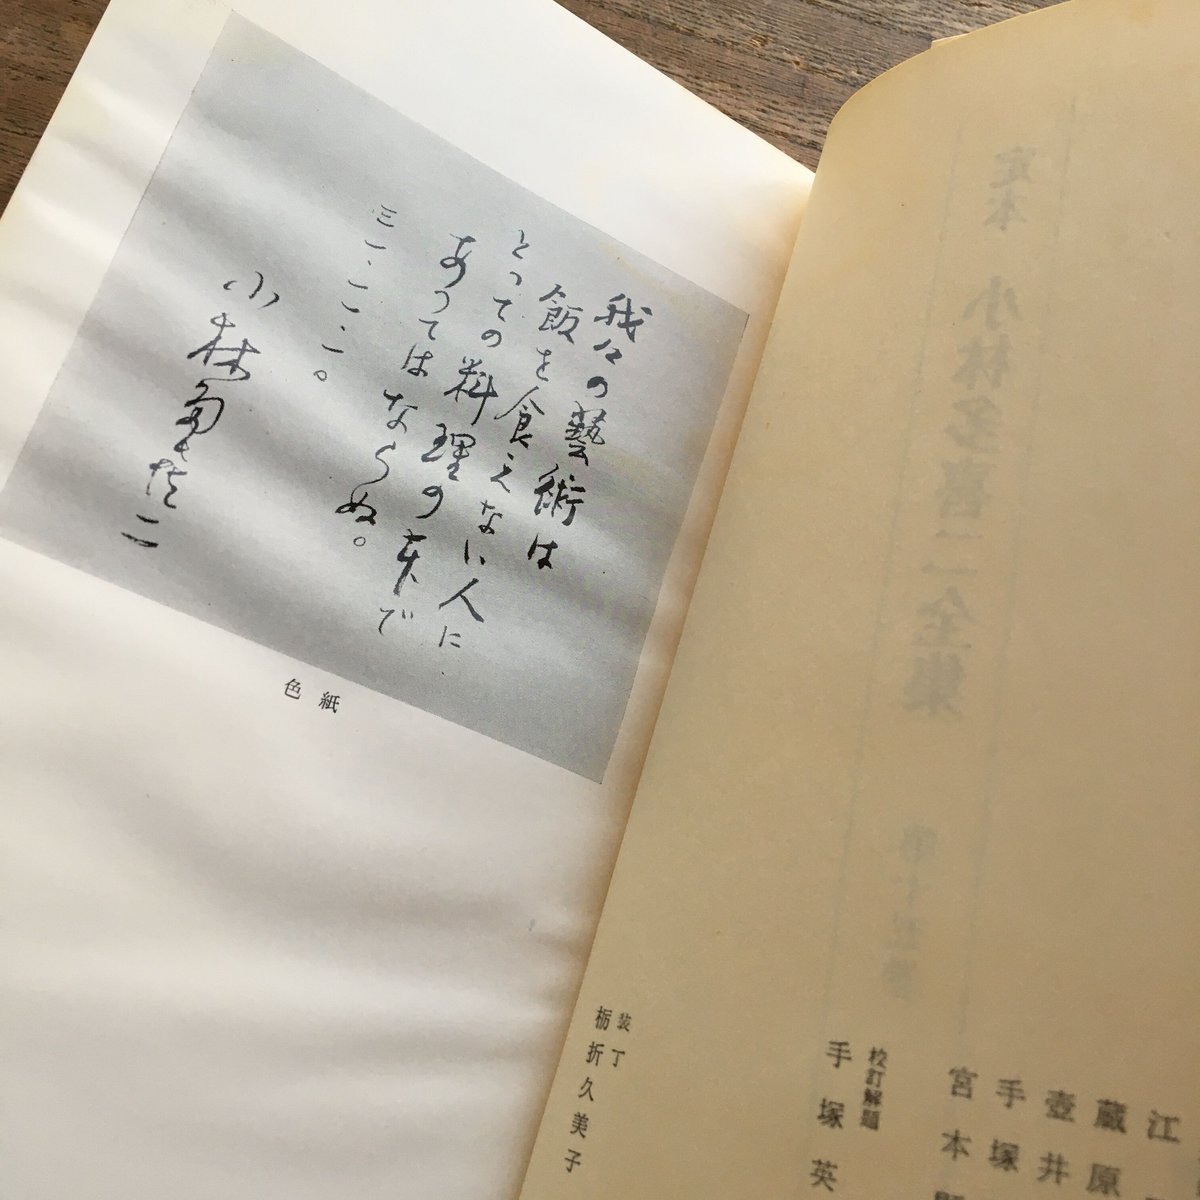 我々の藝術は
飯を食えない人に
とっての料理の本で
あってはならぬ。
三一
小林多喜二
色紙
定本 小林多喜二全集
江
蔵原
壺井
手塚
宮本
校訂解題
手塚英
装丁
栃折久美子